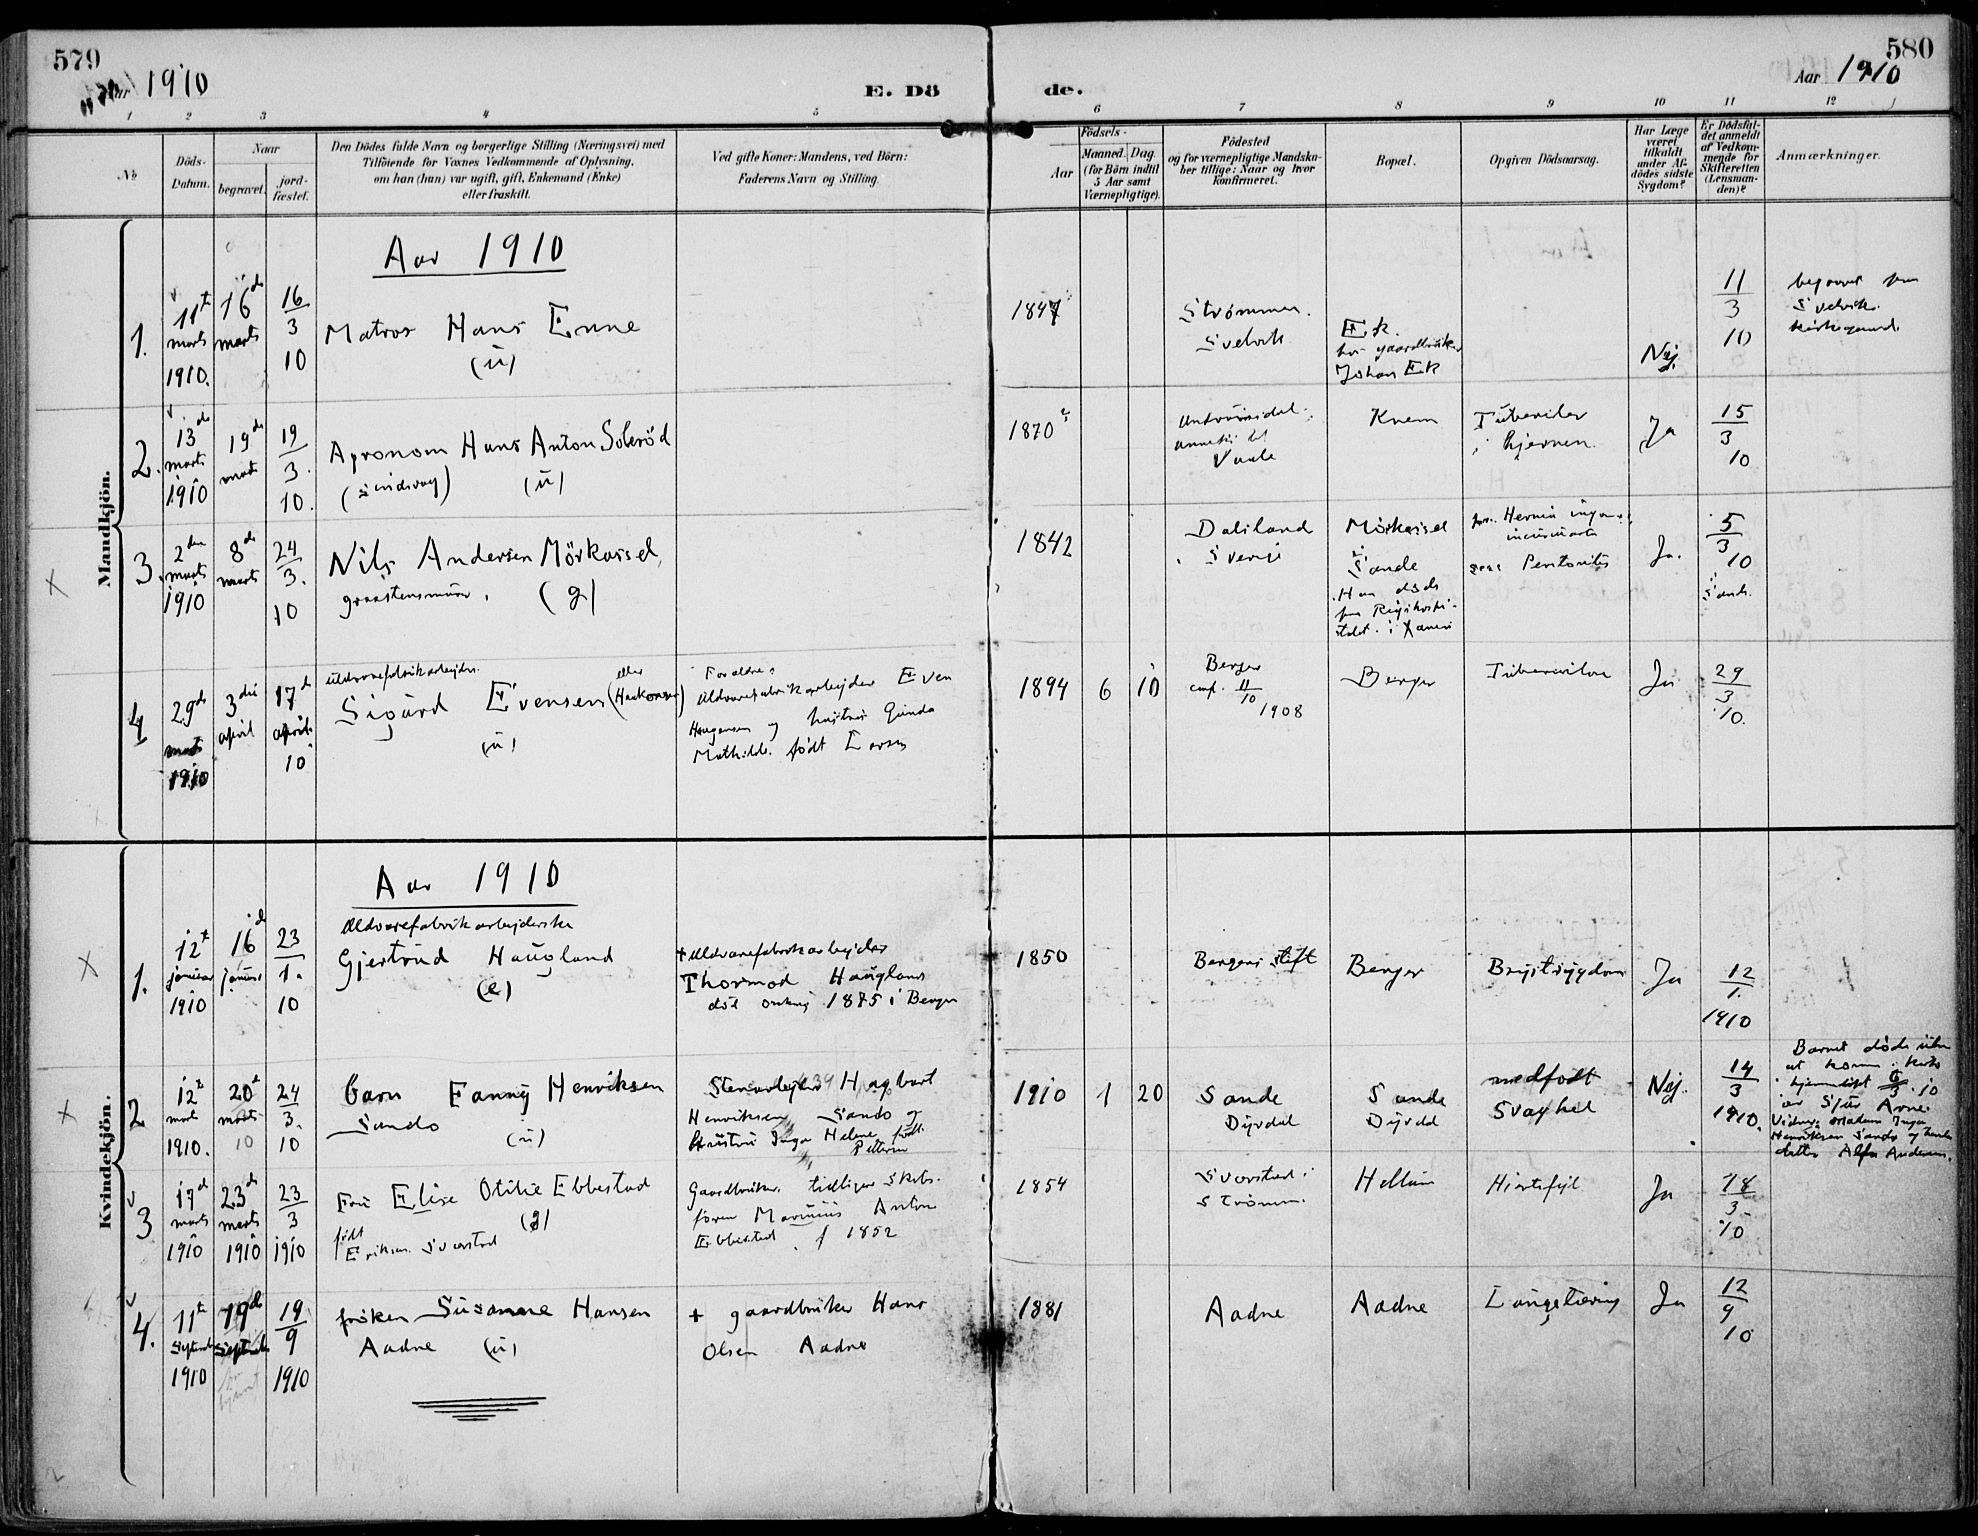 579
Aar 1910
E. Dö
de.
Aar 1910
580
1 2 3 4 5 6 7 8 9 10 11 12
No
Döds-
Datum.
Naar
begravet.
jord-
fæstet.
Den Dödes fulde Navn og borgerlige Stilling (Næringsvei) med
Tilföiende for Voxnes Vedkommende af Oplysning,
om han (hun) var ugift, gift, Enkemand (Enke)
eller fraskilt.
Ved gifte Koner: Mandens, ved Börn:
Faderens Navn og Stilling.
Födsels-
Aar
Maaned. Dag.
(for Börn indtil
5 Aar samt
Værnepligtige).
Födested
og for værnepligtige Mandska-
ber tillige: Naar og hvor
konfirmeret.
Bopæl.
Opgiven Dödsaarsag.
Har Læge
været
tilkaldt
under Af-
dödes sidste
Sygdom?
Er Dödsfal-
det anmeldt
af Vedkom-
mende for
Skifteretten
(Lensman-
den)?
Anmærkninger.
Mandkjön.
Aar 1910
1.
11te
marts
1910.
16de
marts
16
3
10
Matros Hans Enne
(u)
1847
Strømmen.
Svelvik
Ek.
hos gaardbruker
Johan Ek
Nej.
11
3
10
begravet paa
Svelvik
kirkegaard.
2.
13de
marts
1910
19de
marts
19
3.
10.
Agronom Hans Anton Solerød
(sindsvag) (u)
1870
Vaale
Knem
Tuberkler
i hjernen.
Ja
15
3
10
3.
2den
marts
1910
8de
marts
24
3.
10
Nils Andersen Mörkassel,
graastensmurer. (g)
1842
Dalsland
Sverige
Mörkassel
i
Sande
Han døde
paa Rigshospi-
talet. i
Hernia
sec: Peritonitis
Ja.
5
3
10
Sande.
4
29de
marts
1910
3die
april
17de
april
10
uldvarefabrikarbejder.
Sigurd Evensen (eller Haakonsen)
(u)
Forældre:
uldvarefabrikarbejder Even
Haugensen og hustru Gunda
Mathilde født Larsen
1894 6 10
Berger
conf. 11
10
1908
Berger
Tuberculose
Ja
29
3
10.
Kvindekjön.
Aar 1910
1.
12te
januar
1910
16de
januar
23
1.
10
uldvarefabrikarbejderske
Gjertrud Haugland
(e)
+ uldvarefabrikarbejder
Thormod Haugland
død omkring 1875 i Berger
1850
Bergens stift
Berger
Brystsygdom
Ja
12
1.
1910
2
12te
mart
1910.
20de
marts
10
24
3.
10
barn Fanny Henriksen
Sando (u)
Stenarbejder Hagbart
Henriksen Sando og
hustru Inga Helene født
Petterson
1910 1 20
Sande
Dyrdal
Sande
Dyrdal
medfødt
Svaghet
Nej.
14
3
1910.
Barnet døde uten
at komme i kirke
hjemmedøpt 6
3 10
Vidner: Madam Inga
Henriksen Sando og hendes
datter Alfa Andersen.
3
17de
marts
1910
23de
marts
1910
23
3
1910
Fru Elise Otilie Ebbestad
født (g)
Eriksen Svarstad
Gaardbruker, tidligere Skibs-
fører Marinius Anton
Ebbestad f 1852
1854
Svarstad i
Strømm.
Hellum
Hjertefejl
Ja
18
3
10
4.
11te
September
1910
19de
September
19
9
1910
frøken Susanne Hansen
Aadne (u)
+ gaardbruker Hans
Olsen Aadne
1881
Aadne
Aadne
Lungetæring
Ja
12
9
10